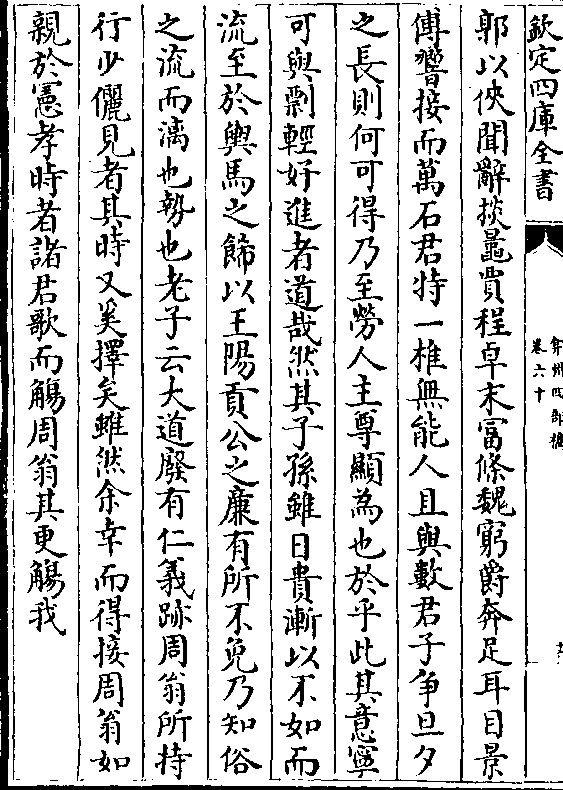 欽定四庫全書
弇州四部稿
卷六十
郭以俠聞辭掞鼂賈程卓末富條魏窮爵奔足耳目景
傅響接而萬石君特一椎無能人且與數君子爭旦夕
之長則何可得乃至勞人主尊顯為也於乎此其意寧
可與剽輕好進者道哉然其子孫雖日貴漸以不如而
流至於輿馬之餙以王陽貢公之廉有所不免乃知俗
之流而漓也勢也老子云大道廢有仁義跡周翁所持
行少儷見者其時又奚擇矣雖然余幸而得接周翁如
親於憲孝時者諸君歌而觴周翁其更觴我